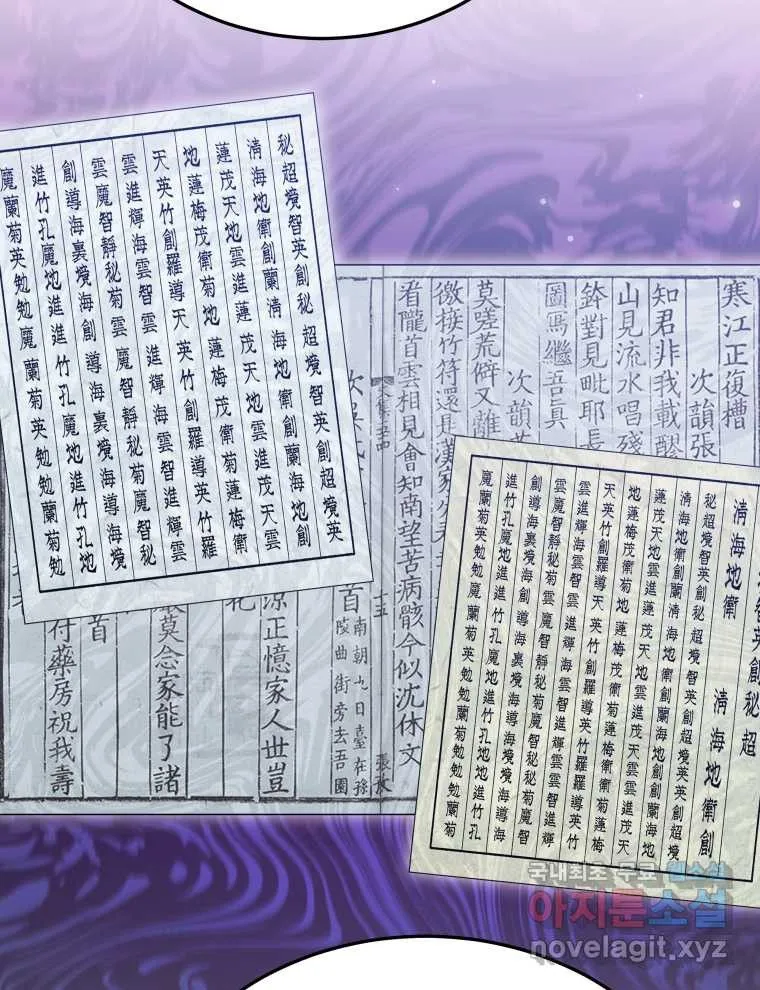 秘超境智英創秘 超境智英創超境英
清海地衛創蘭清 海地衛創蘭海地創
蓮茂天地雲進蓮 茂天地雲進茂天雲
地蓮梅茂衛菊地 蓮梅茂衛菊蓮梅衛
天英竹創羅導天 英竹創羅導英竹羅
雲進輝海雲智雲 進輝海雲智進輝雲
雲魔智靜秘菊雲 魔智靜秘菊魔智秘
創導海裏境海創 導海裏境海導海境
進竹孔魔地進進 竹孔魔地進竹孔地
魔蘭菊英勉勉魔 蘭菊英勉勉蘭菊勉
寒江正復槽
次韻張
知君非我載醪
山見流水唱殘
鉢對見毗耶長
圖寫繼吾真
次韻
莫嗟荒僻又離
微接竹符還
看隴首雲相見會知南望苦病骸今似沈休文
十五
首 南朝九日臺在孫
陵曲街旁去吾園
涼正憶家人世豈
花
莫念家能了諸
首
付藥房祝我壽
英創秘超
清海地衛 清海地衛創
秘超境智英創秘 超境智英創超境英英創超境
清海地衛創蘭清 海地衛創蘭海地創創蘭海地
蓮茂天地雲進蓮 茂天地雲進茂天雲雲進茂天
地蓮梅茂衛菊地 蓮梅茂衛菊蓮梅衛衛菊蓮梅
天英竹創羅導天 英竹創羅導英竹羅羅導英竹
雲進輝海雲智雲 進輝海雲智進輝雲雲智進輝
雲魔智靜秘菊雲 魔智靜秘菊魔智秘秘菊魔智
創導海裏境海創 導海裏境海導海境境海導海
進竹孔魔地進進 竹孔魔地進竹孔地地進竹孔
魔蘭菊英勉勉魔 蘭菊英勉勉蘭菊勉勉蘭菊
국내최초 무료 웹소설
아지툰소설
novelagit.xyz